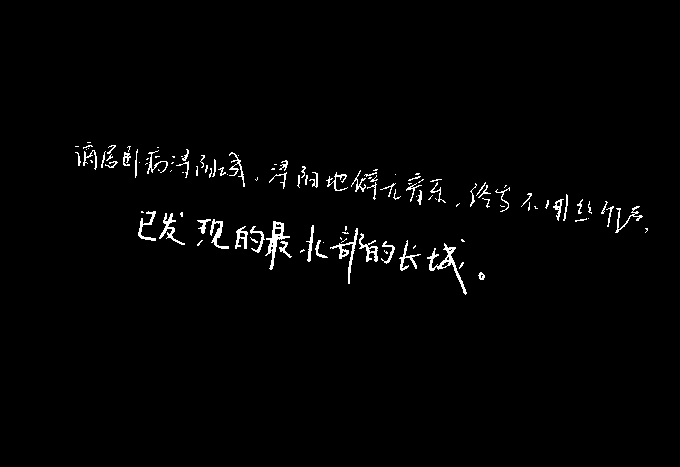 谪居卧病浔阳城，浔阳地僻无音乐，终岁不闻丝竹声，
已发现的最北部的长城。